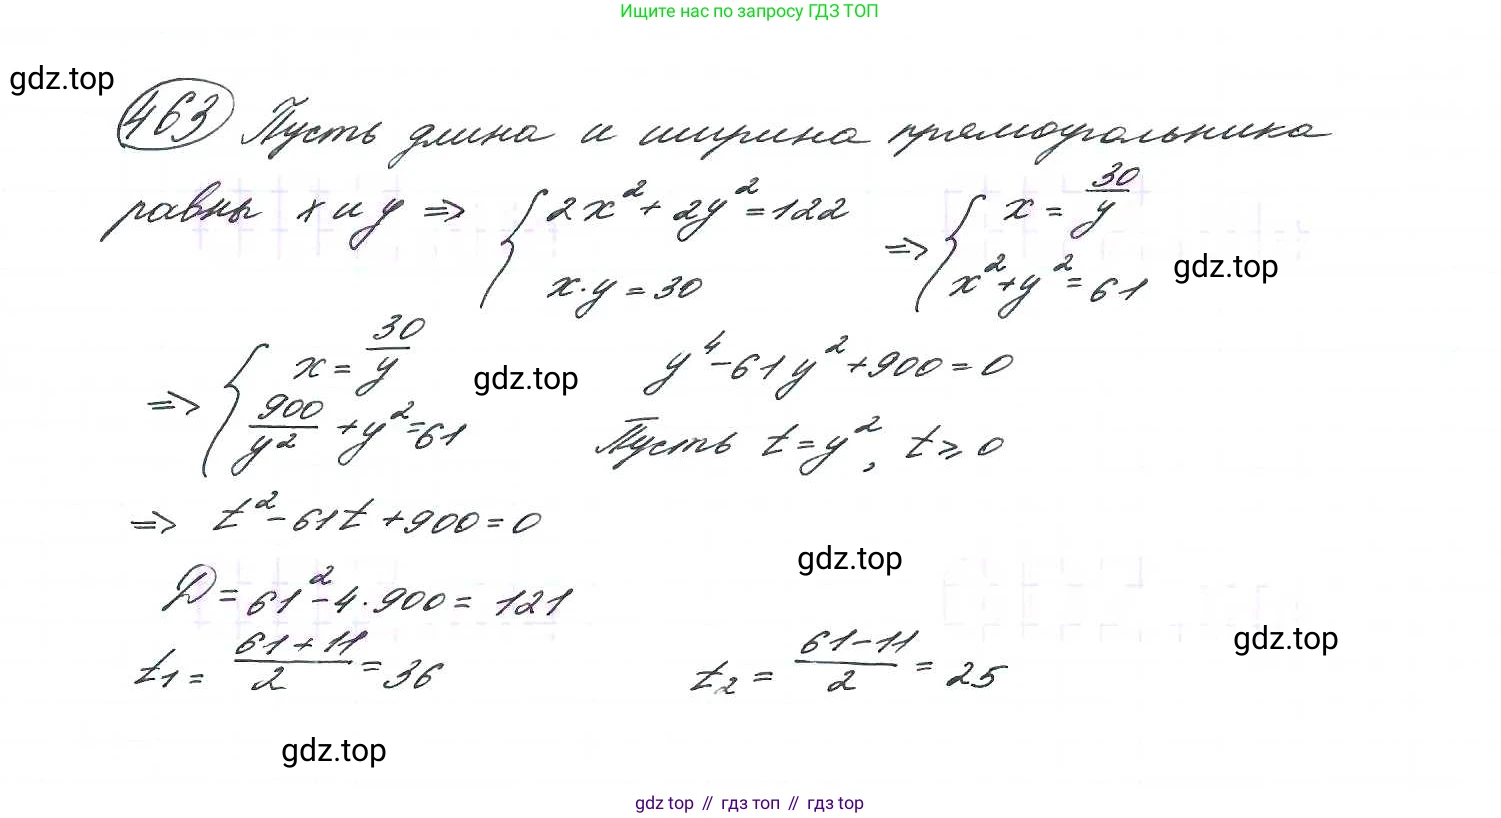 Ищите нас по запросу ГДЗ ТОП
gdz.top
463 Пусть длина и ширина прямоугольника
равны x и y => { 2x² + 2y² = 122 ; x·y = 30 => { x = 30/y ; x² + y² = 61
gdz.top
=> { x = 30/y ; 900/y² + y² = 61
gdz.top
y⁴ - 61y² + 900 = 0
Пусть t = y², t ⩾ 0
=> t² - 61t + 900 = 0
gdz.top
D = 61² - 4·900 = 121
gdz.top
t₁ = (61 + 11)/2 = 36 t₂ = (61 - 11)/2 = 25
gdz.top
gdz top // гдз топ // гдз top